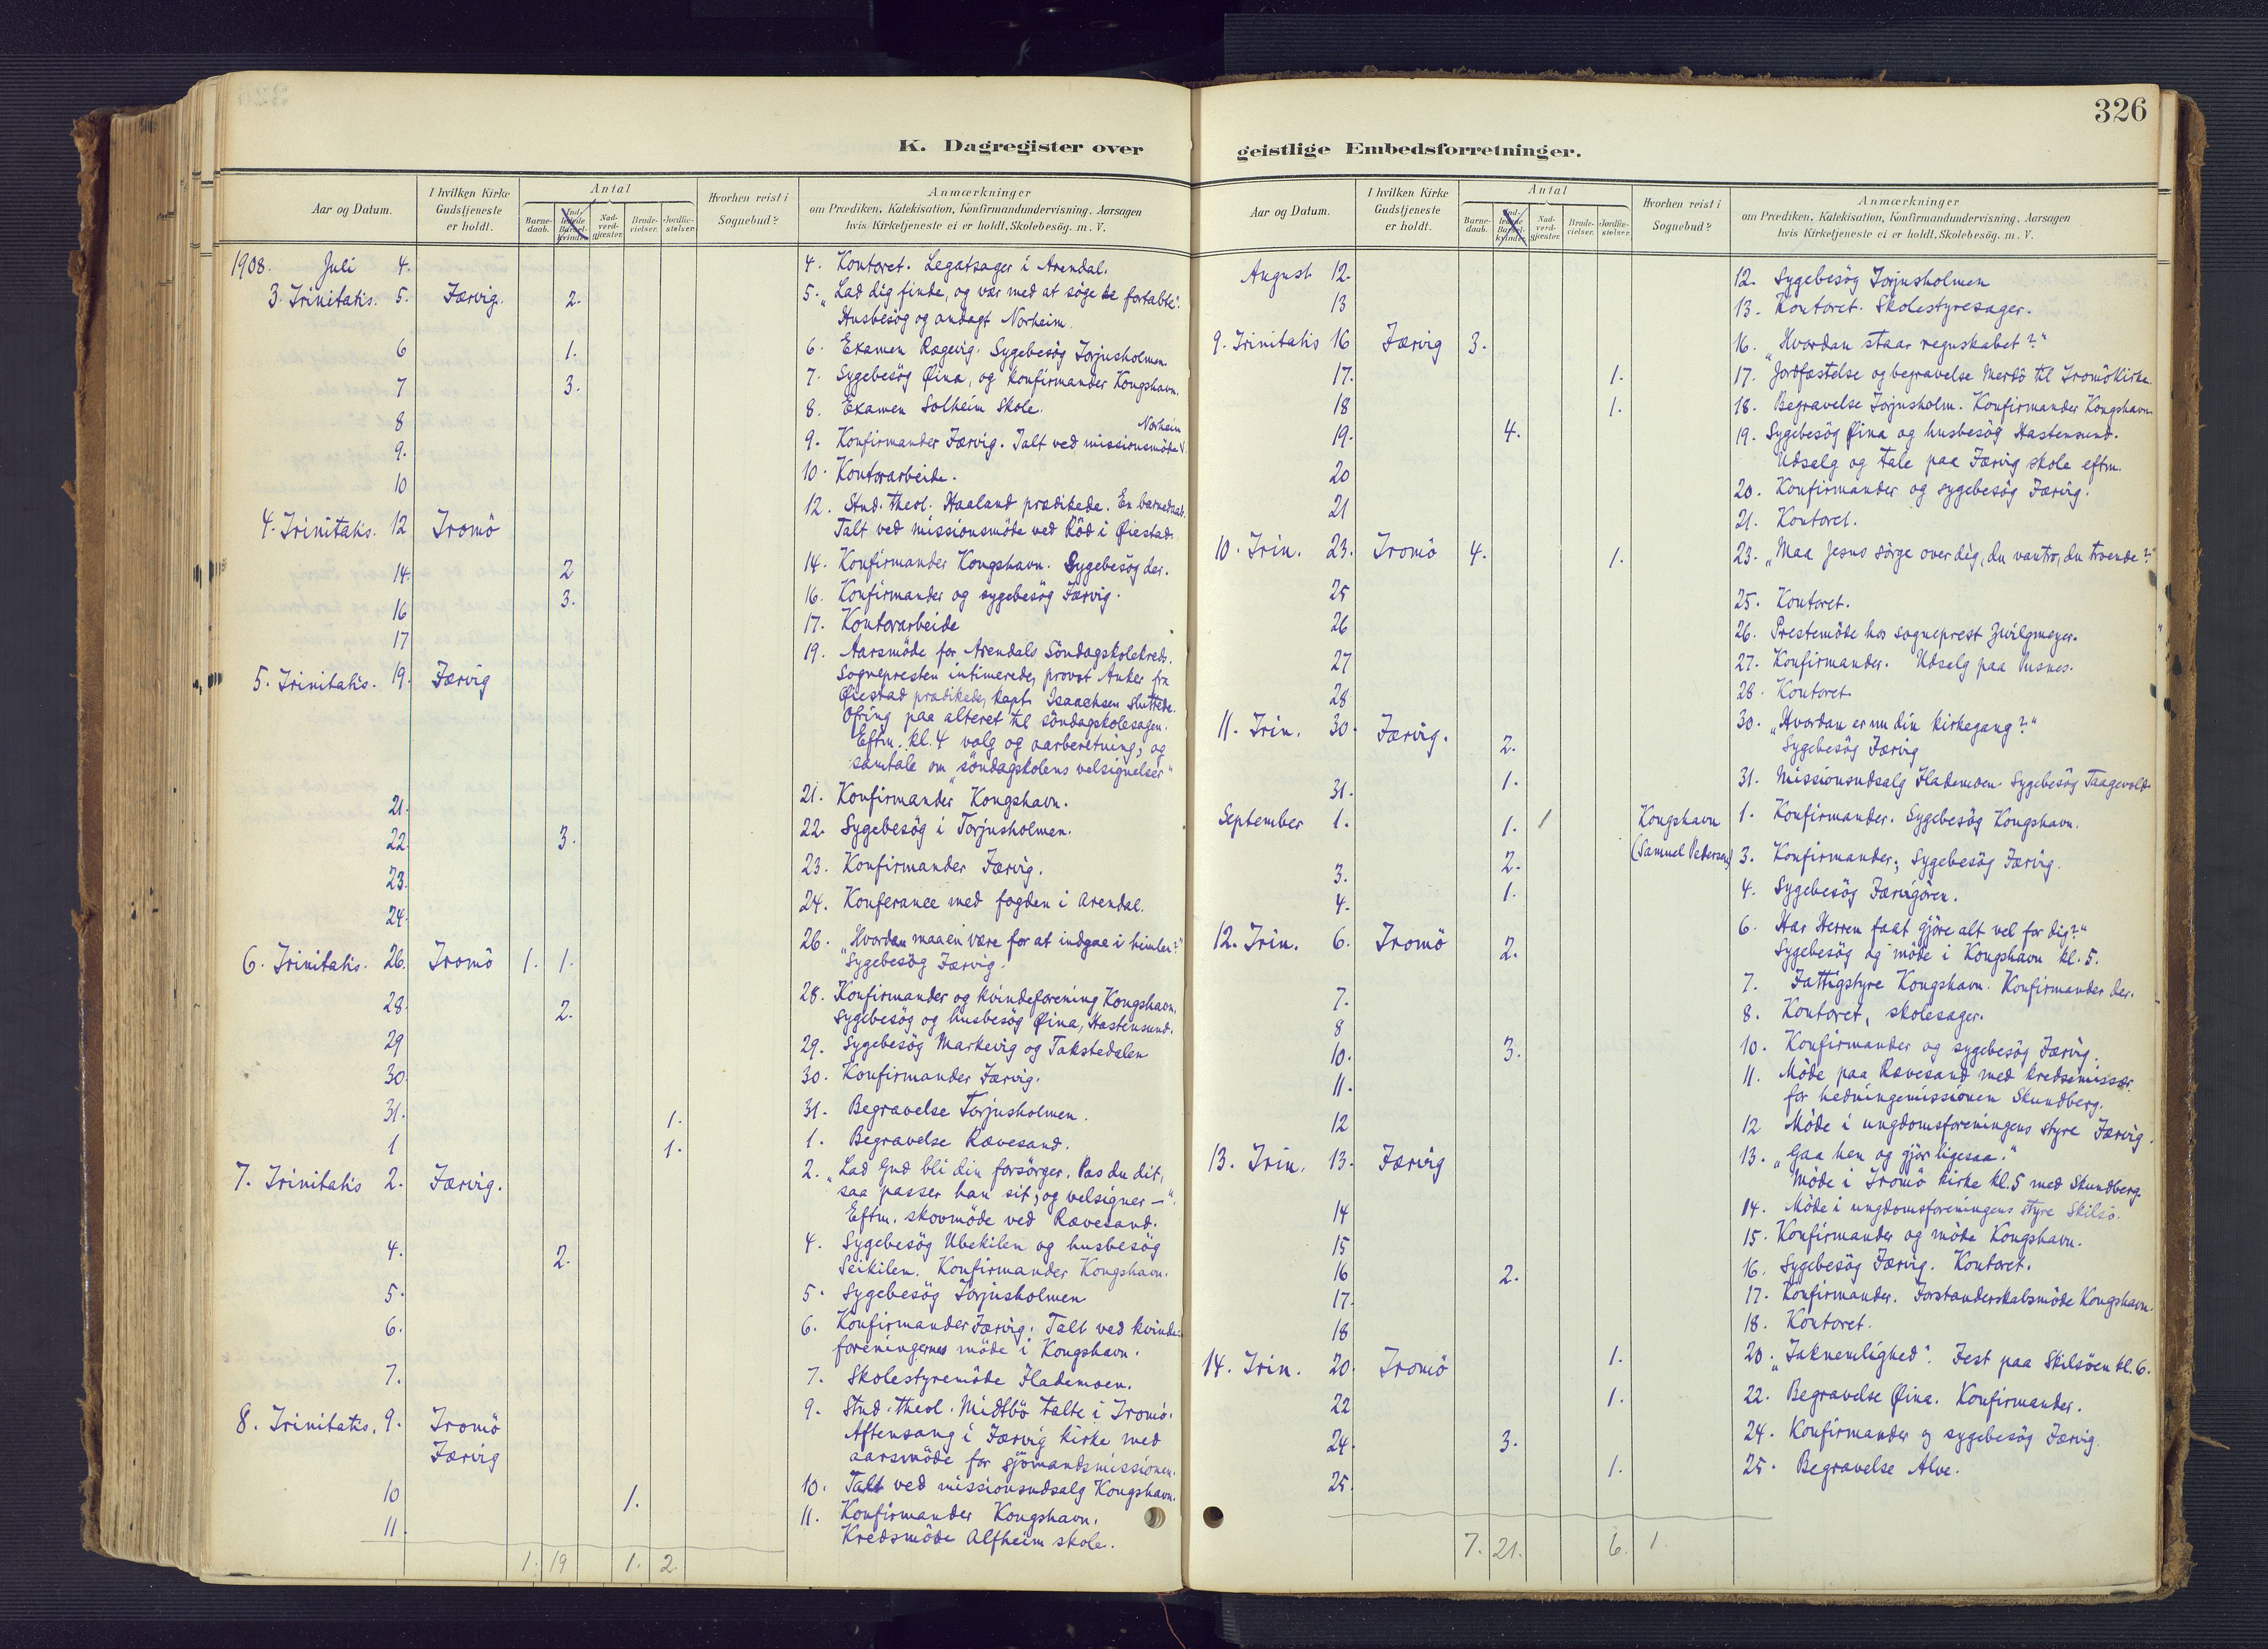 326
K. Dagregister over
geistlige Embedsforretninger.
Aar og Datum.
I hvilken Kirke Gudstjeneste er holdt.
Antal
Barne-daab.
Ind-ledede Barsel-kvinder.
Nad-verd-gjæster.
Brude-vielser.
Jordfæ-stelser.
Hvorhen reist i Sognebud?
Anmærkninger
om Prædiken, Katekisation, Konfirmandundervisning, Aarsagen
hvis Kirketjeneste ei er holdt, Skolebesøg. m. V.
1908. Juli 4. 4. Kontoret. Legatsager i Arendal.
3. Trinitatis. 5. Færvig. 2. 5. „Lad dig finde, og vær med at søge de fortabte".
Husbesøg og andagt Norheim.
6 1. 6. Examen Rægevig. Sygebesøg Torjusholmen.
7 3. 7. Sygebesøg Øina, og konfirmander Kongshavn.
8 8. Examen Solheim Skole.
9. 9. Konfirmander Færvig. Talt ved missionsmøde Norheim
10 10. Kontorarbeide.
4. Trinitatis. 12 Tromö 12. Stud. theol. Haaland prædikede. En barnedaab.
Talt ved missionsmöde ved Röd i Øiestad.
14. 2 14. Konfirmander Kongshavn. Sygebesög der.
16 3. 16. Konfirmander og sygebesög Færvig.
17 17. Kontorarbeide
5. Trinitatis. 19. Færvig 19. Aarsmöde for Arendals Söndagskolekreds.
Sognepresten intimerede, provst Anker fra
Øiestad prædikede, kapt. Isaachsen sluttede.
Ofring paa alteret til söndagskolesagen.
Eftm. kl. 4 valg og aarberetning; og
samtale om „söndagskolens velsignelser"
21. 21. Konfirmander Kongshavn.
22. 3. 22. Sygebesög i Torjusholmen.
23. 23. Konfirmander Færvig.
24. 24. Konferance med fogden i Arendal.
6. Trinitatis. 26. Tromö 1. 1. 26. „Hvordan maa en være for at indgaa i himlen?"
Sygebesög Færvig.
28. 2. 28. Konfirmander og kvindeforening Kongshavn.
Sygebesög og husbesög Øina, Hastensund.
29 29. Sygebesög Markevig og Takstedalen
30. 30. Konfirmander Færvig.
31. 1. 31. Begravelse Torjusholmen.
1 1. 1. Begravelse Rævesand.
7. Trinitatis 2. Færvig. 2. „Lad Gud bli din forsörger. Pas du dit,
saa passer han sit; og velsigner —".
Eftm. skovmöde ved Rævesand.
4. 2. 4. Sygebesög Ubekilen og husbesög
Seikilen. Konfirmander Kongshavn.
5. 5. Sygebesög Torjusholmen
6. 6. Konfirmander Færvig. Talt ved kvinde-
foreningernes möde i Kongshavn.
7. 7. Skolestyremöde Flademoen.
8. Trinitatis. 9. Tromö 9. Stud. theol. Midtbö talte i Tromö.
Færvig Aftensang i Færvig kirke med
aarsmöde for sjömandsmissionen.
10 1. 10. Talt ved missionsudsalg Kongshavn.
11. 11. Konfirmander Kongshavn.
Kredsmöde Alfheim skole.
1. 19 1. 2.
Aar og Datum.
I hvilken Kirke Gudstjeneste er holdt.
Antal
Barne-daab.
Ind-ledede Barsel-kvinder.
Nad-verd-gjæster.
Brude-vielser.
Jordfæ-stelser.
Hvorhen reist i Sognebud?
Anmærkninger
om Prædiken, Katekisation, Konfirmandundervisning, Aarsagen
hvis Kirketjeneste ei er holdt, Skolebesög. m. V.
August 12. 12. Sygebesög Torjusholmen
13 13. Kontoret. Skolestyresager.
9. Trinitatis 16 Færvig 3. 16. „Hvordan staar regnskabet?"
17. 1. 17. Jordfæstelse og begravelse Merdö til Tromö kirke.
18 1. 18. Begravelse Torjusholm. Konfirmander Kongshavn.
19. 4. 19. Sygebesög Øina og husbesög Hastensund.
Udsalg og tale paa Færvig skole eftm.
20 20. Konfirmander og sygebesög Færvig.
21 21. Kontoret.
10. Trin. 23. Tromö 4. 1. 23. „Maa Jesus sörge over dig, du vantro, du troende?"
25 25. Kontoret.
26 26. Prestemöde hos sogneprest Zwilgmeyer.
27 27. Konfirmander. Udsalg paa Pusnes.
28 28. Kontoret.
11. Trin. 30. Færvig. 2. 30. „Hvordan er nu din kirkegang?"
Sygebesög Færvig
31. 1. 31. Missionsudsalg Flademoen. Sygebesög Taagevold.
September 1. 1. 1 Kongshavn 1. Konfirmander. Sygebesög Kongshavn.
(Samuel Pedersen)
3. 2. 3. Konfirmander; Sygebesög Færvig.
4. 1. 4. Sygebesög Færvigören.
12. Trin. 6. Tromö 2. 6. Har Herren faat gjöre alt vel for dig?"
Sygebesög og möde i Kongshavn kl. 5.
7. 7. Fattigstyre Kongshavn. Konfirmander der.
8 8. Kontoret, skolesager.
10. 3. 10. Konfirmander og sygebesög Færvig.
11. 11. Möde paa Rævesand med kredsemissær
for hedningemissionen Skundberg.
12 12 Möde i ungdomsforeningens styre Færvig.
13. Trin. 13. Færvig 13. „Gaa hen og gjör ligesaa."
Möde i Tromö kirke kl. 5 med Skundberg.
14 14. Möde i ungdomsforeningens styre Skilsö.
15 15. Konfirmander og möde Kongshavn.
16 2. 16. Sygebesög Færvig. Kontoret.
17. 17. Konfirmander. Forstanderskabsmöde Kongshavn.
18 18. Kontoret.
14. Trin. 20. Tromö 1. 20. „Taknemlighed". Fest paa Skilsöen kl. 6.
22 1. 22. Begravelse Øina. Konfirmander.
24. 3. 24. Konfirmander og sygebesög Færvig.
25. 1. 25. Begravelse Alve.
7. 21. 6. 1.